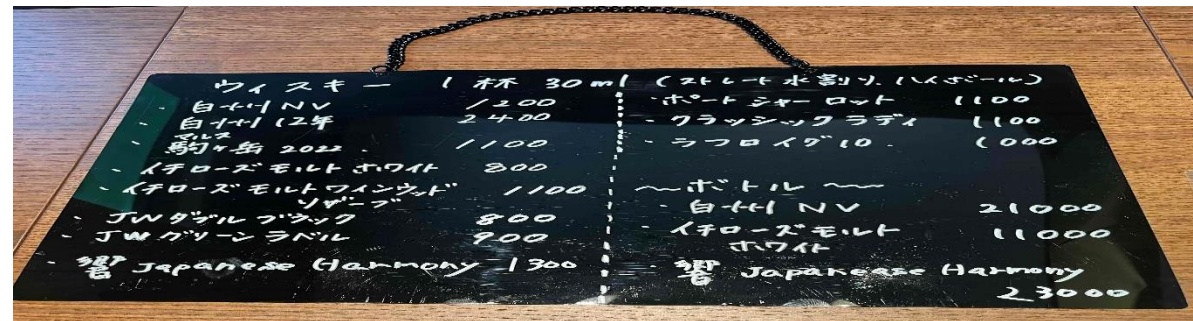 ウィスキー 1杯 30ml (ストレート水割り.ハイボール)
・白州NV 1200
・白州12年 2400
マルス
・駒ヶ岳 2022. 1100
・イチローズモルトホワイト 800
・イチローズモルトワインウッド 1100
リザーブ
・JWダブルブラック 800
・JWグリーンラベル 900
・響 Japanease Harmony 1300
・ポートシャーロット 1100
・クラッシックラディ 1100
・ラフロイグ10. 1000
〜ボトル〜
・白州 NV 21000
・イチローズモルト 11000
ホワイト
・響 Japanease Harmony
23000